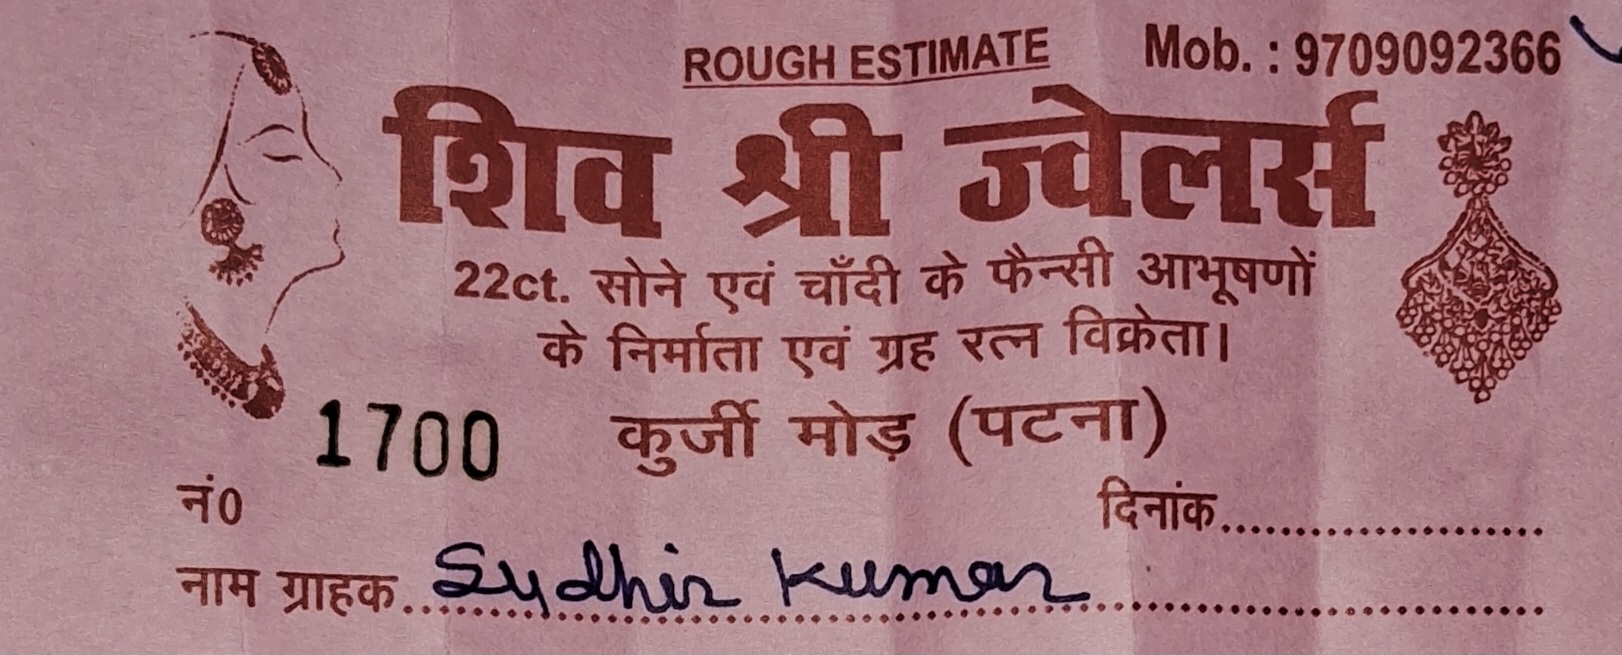 ROUGH ESTIMATE Mob. : 9709092366
शिव श्री ज्वेलर्स
22ct. सोने एवं चाँदी के फैन्सी आभूषणों
के निर्माता एवं ग्रह रत्न विक्रेता।
1700 कुर्जी मोड़ (पटना)
नं0 दिनांक......................
नाम ग्राहक..Sudhir Kumar..............................